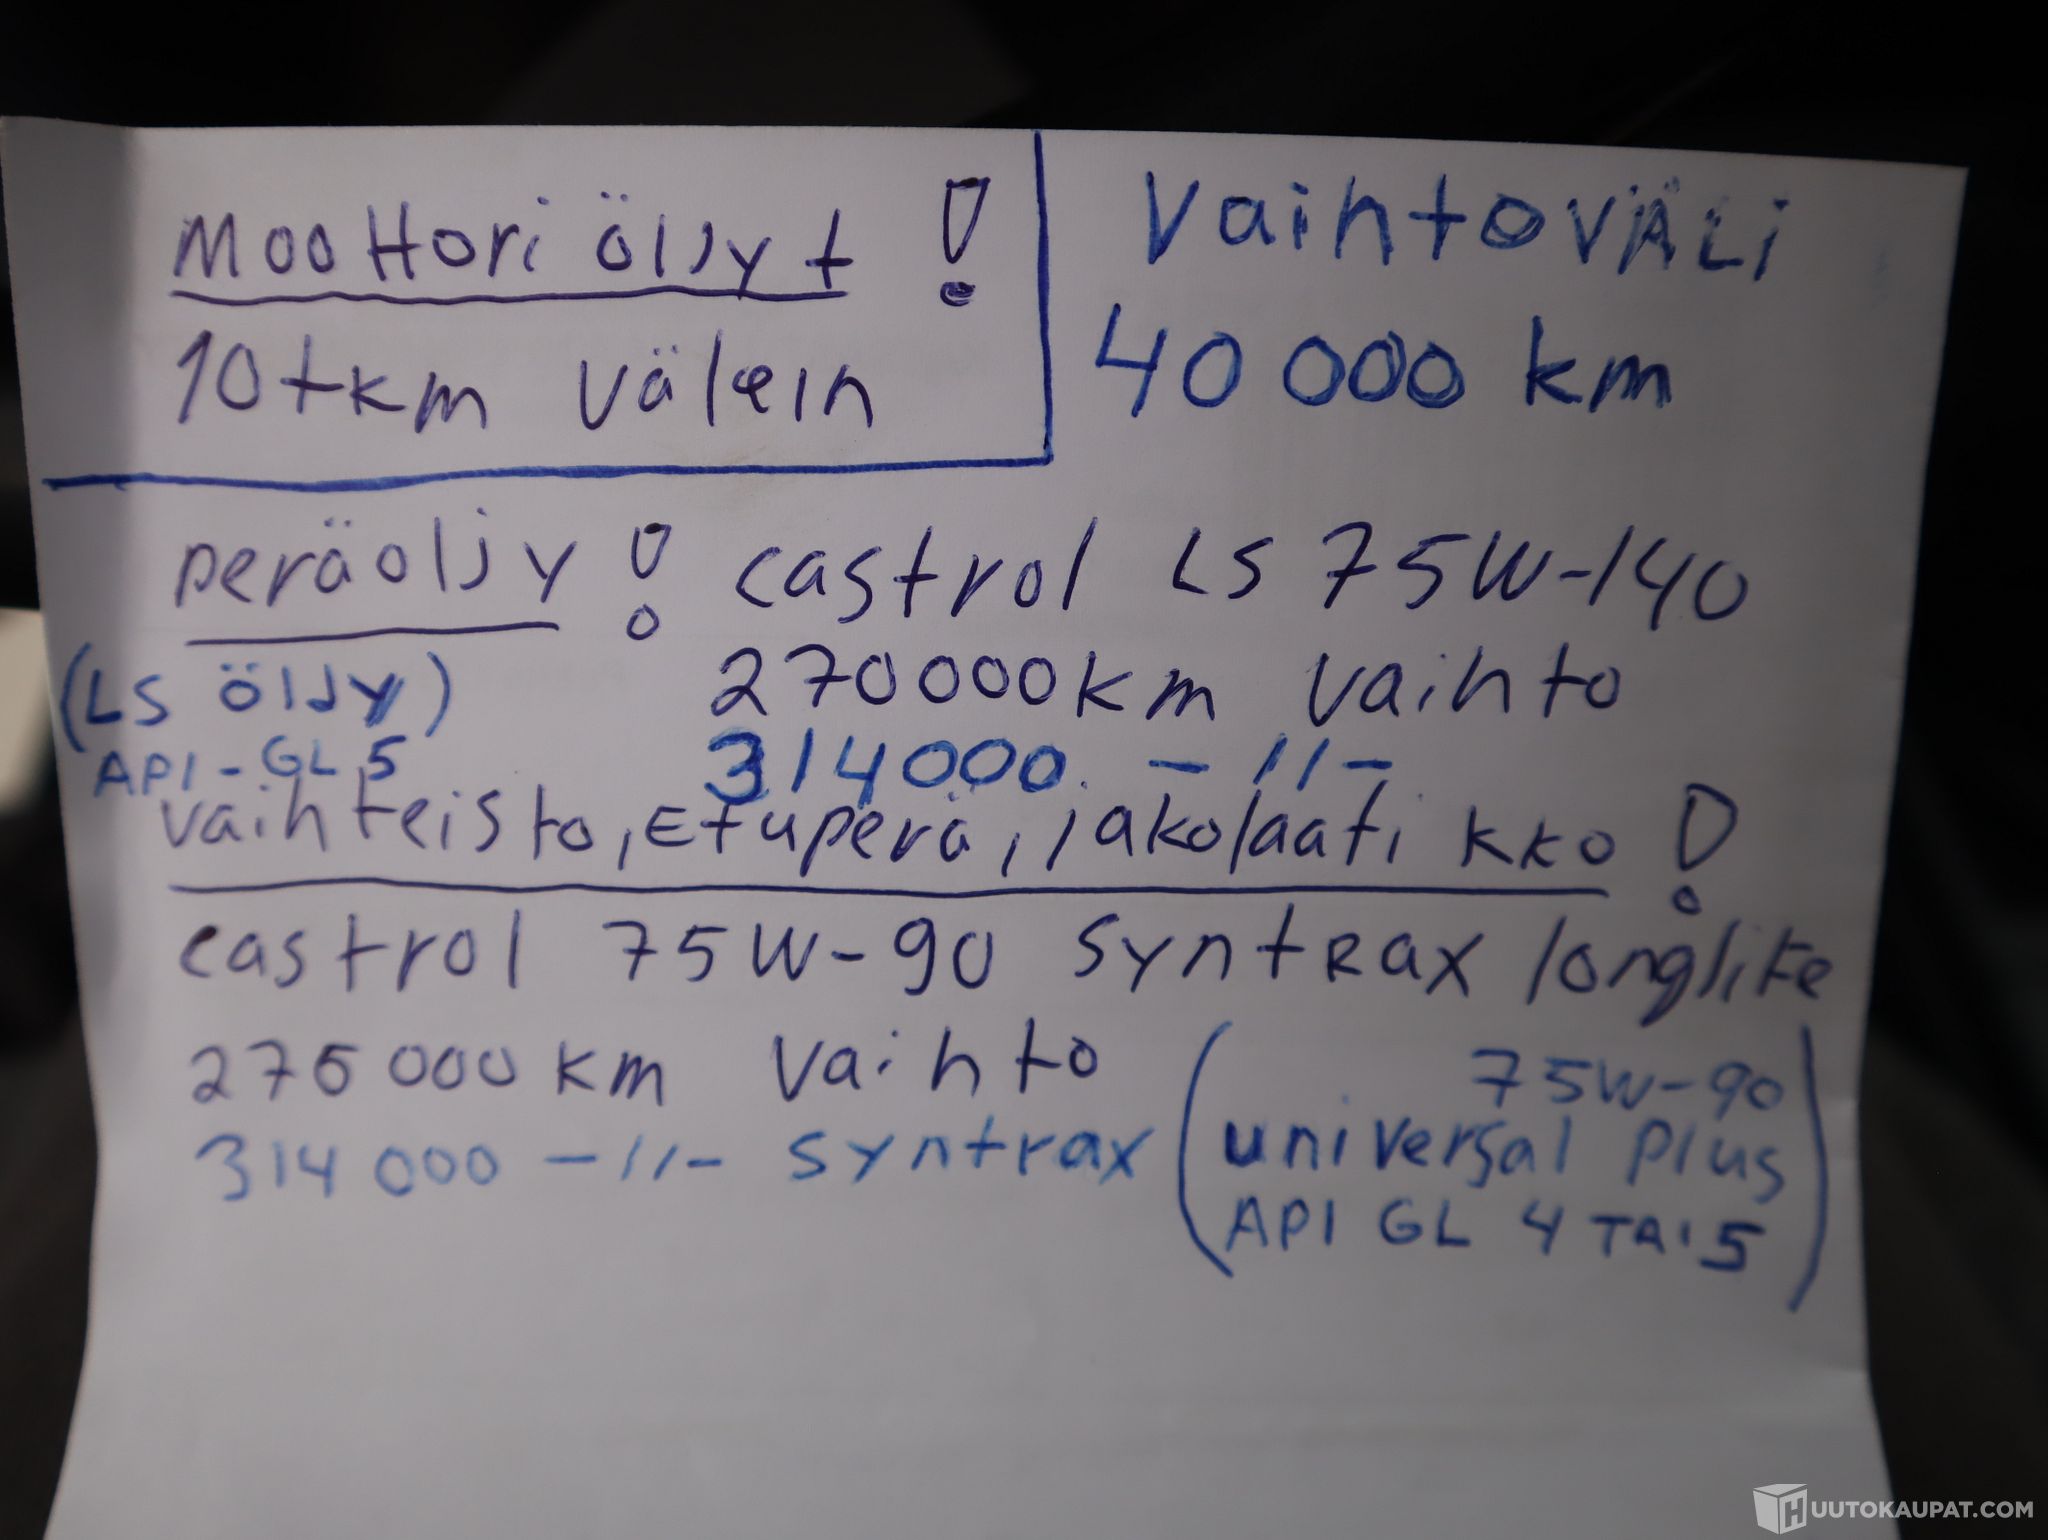 Moottori öljyt !
10tkm välein
VaihtoVÄLi
40 000 km
peräöljy ! castrol LS 75W-140
(LS öljy) 270000km vaihto
API-GL 5 314000 -//-
vaihteisto, Etuperä, jakolaatikko !
castrol 75W-90 SyntRax longlife
275000km vaihto
314000 -//- syntrax
(75W-90
universal plus
API GL 4 TAI 5)
HUUTOKAUPAT.COM